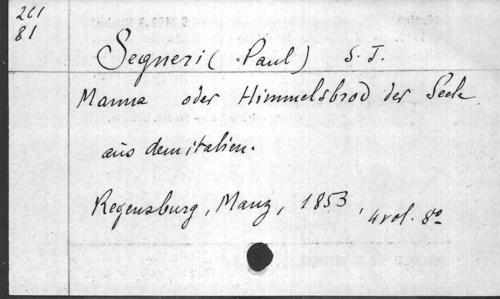 261
81
Segneri ( Paul ) S. J.
Manna oder Himmelsbrod der Seele
aus dem italien.
Regensburg, Manz, 1853, 4 vol. 8º